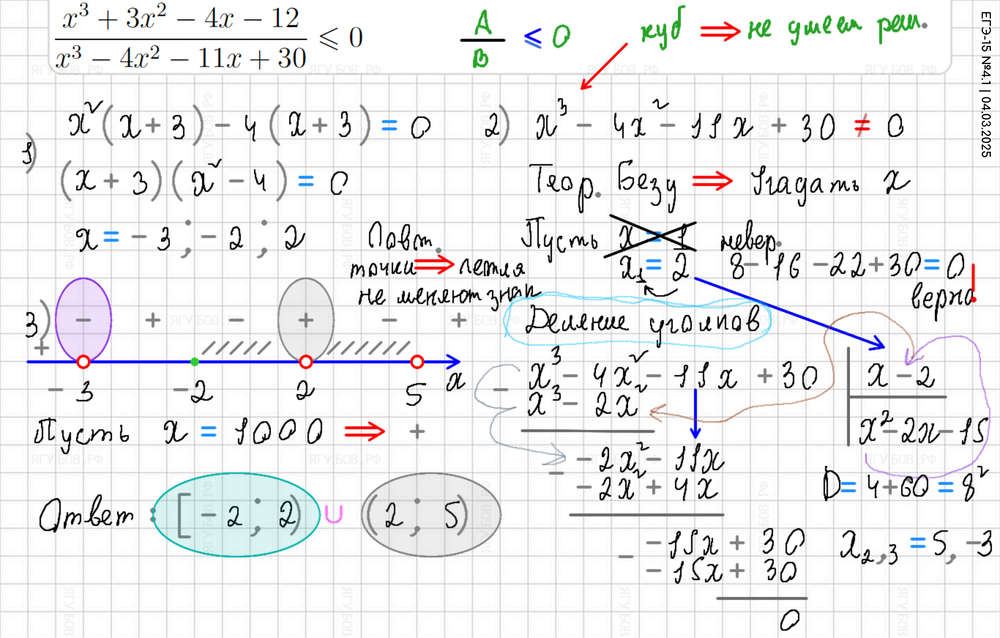 x³ + 3x² − 4x − 12
x³ − 4x² − 11x + 30
⩽ 0
A
B
≤ 0
куб ⇒ не умеем реш.
ЕГЭ-15 №4.1 | 04.03.2025
1) x²(x+3) − 4(x+3) = 0
(x+3)(x² − 4) = 0
x = −3 ; −2 ; 2
2) x³ − 4x² − 11x + 30 ≠ 0
Теор. Безу ⇒ Угадать x
Пусть x = 1 невер.
x₁ = 2 8−16−22+30=0
верно!
Повт.
точки ⇒ петля
не меняют знак
3) + − + − + − +
−3 −2 2 5 x
Пусть x = 1000 ⇒ +
Ответ : [−2 ; 2) ∪ (2 ; 5)
Деление уголком
x³ − 4x² − 11x + 30 | x − 2
− x³ − 2x² x²−2x−15
− −2x² − 11x
−2x² + 4x
− −15x + 30
−15x + 30
0
D = 4+60 = 8²
x₂,₃ = 5, −3